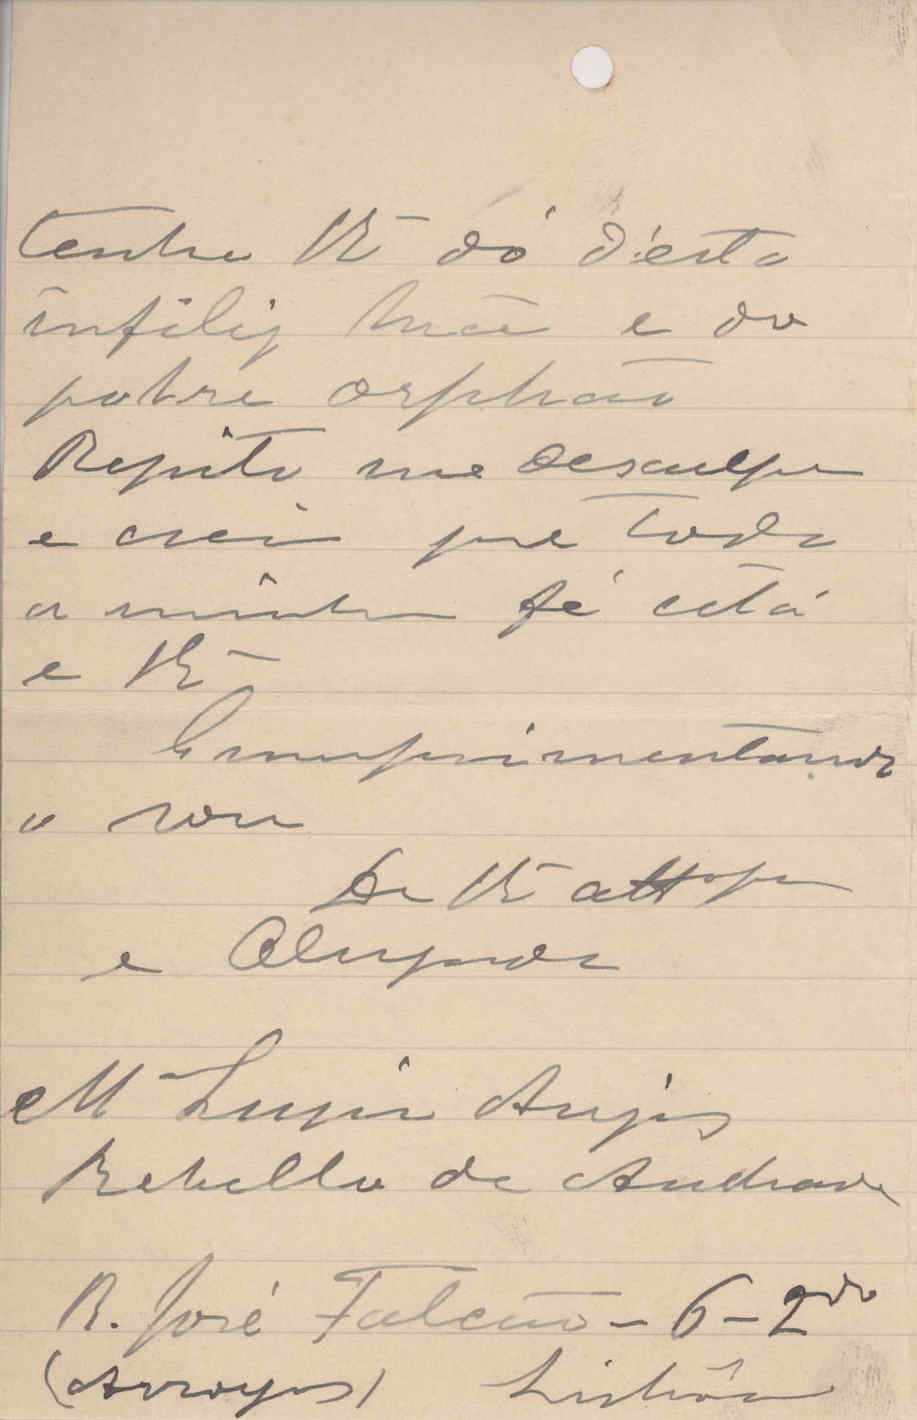 tenha VExª dó d'esta
infeliz Mãe e do
pobre orphão
Repito me desculpe
e creia que toda
a minha fé está
e VExª
Cumprimentando
o sou
De VExª attª
e Obrigada
M Luzia
Rebello de Andrade
R. José Falcão - 6 - 2do
(Arroyos) Lisbôa